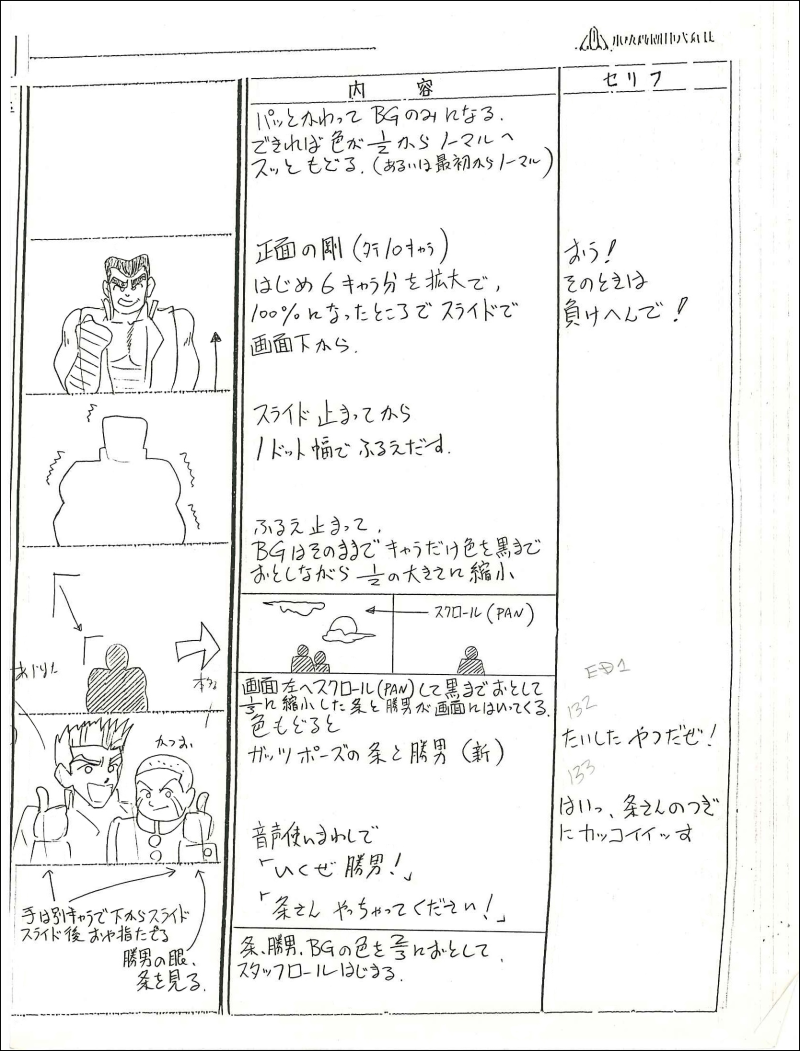 内容
セリフ
パッとかわって BGのみになる.
できれば 色が 1/2 から ノーマルへ
スッと もどる. (あるいは最初から ノーマル)
正面の剛 (タテ10キャラ)
はじめ 6 キャラ分を拡大で,
100%になったところで スライドで
画面下から.
おう!
そのときは
負けへんで!
スライド 止まってから
1ドット幅で ふるえだす.
ふるえ止まって,
BGはそのままで キャラだけ色を黒まで
おとしながら 1/2 の大きさに縮小
スクロール (PAN)
画面 左へスクロール(PAN) して 黒までおとして
に縮小した 条と勝男が画面にはいってくる.
色もどると
ガッツポーズの 条と勝男 (新)
ED1
132
たいした やつだぜ!
133
はいっ、条さんのつぎ
にカッコイイッす
かつお
音声使いまわしで
「いくぜ 勝男!」
「条さん やっちゃってください!」
手は別キャラで下からスライド
スライド後 おや指たてる
勝男の眼,
条を見る.
条, 勝男, BGの色を 2/3 におとして,
スタッフロールはじまる.